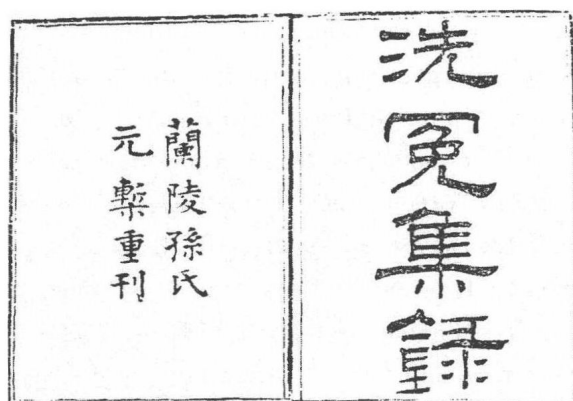 洗冤集録
蘭陵孫氏
元槧重刊